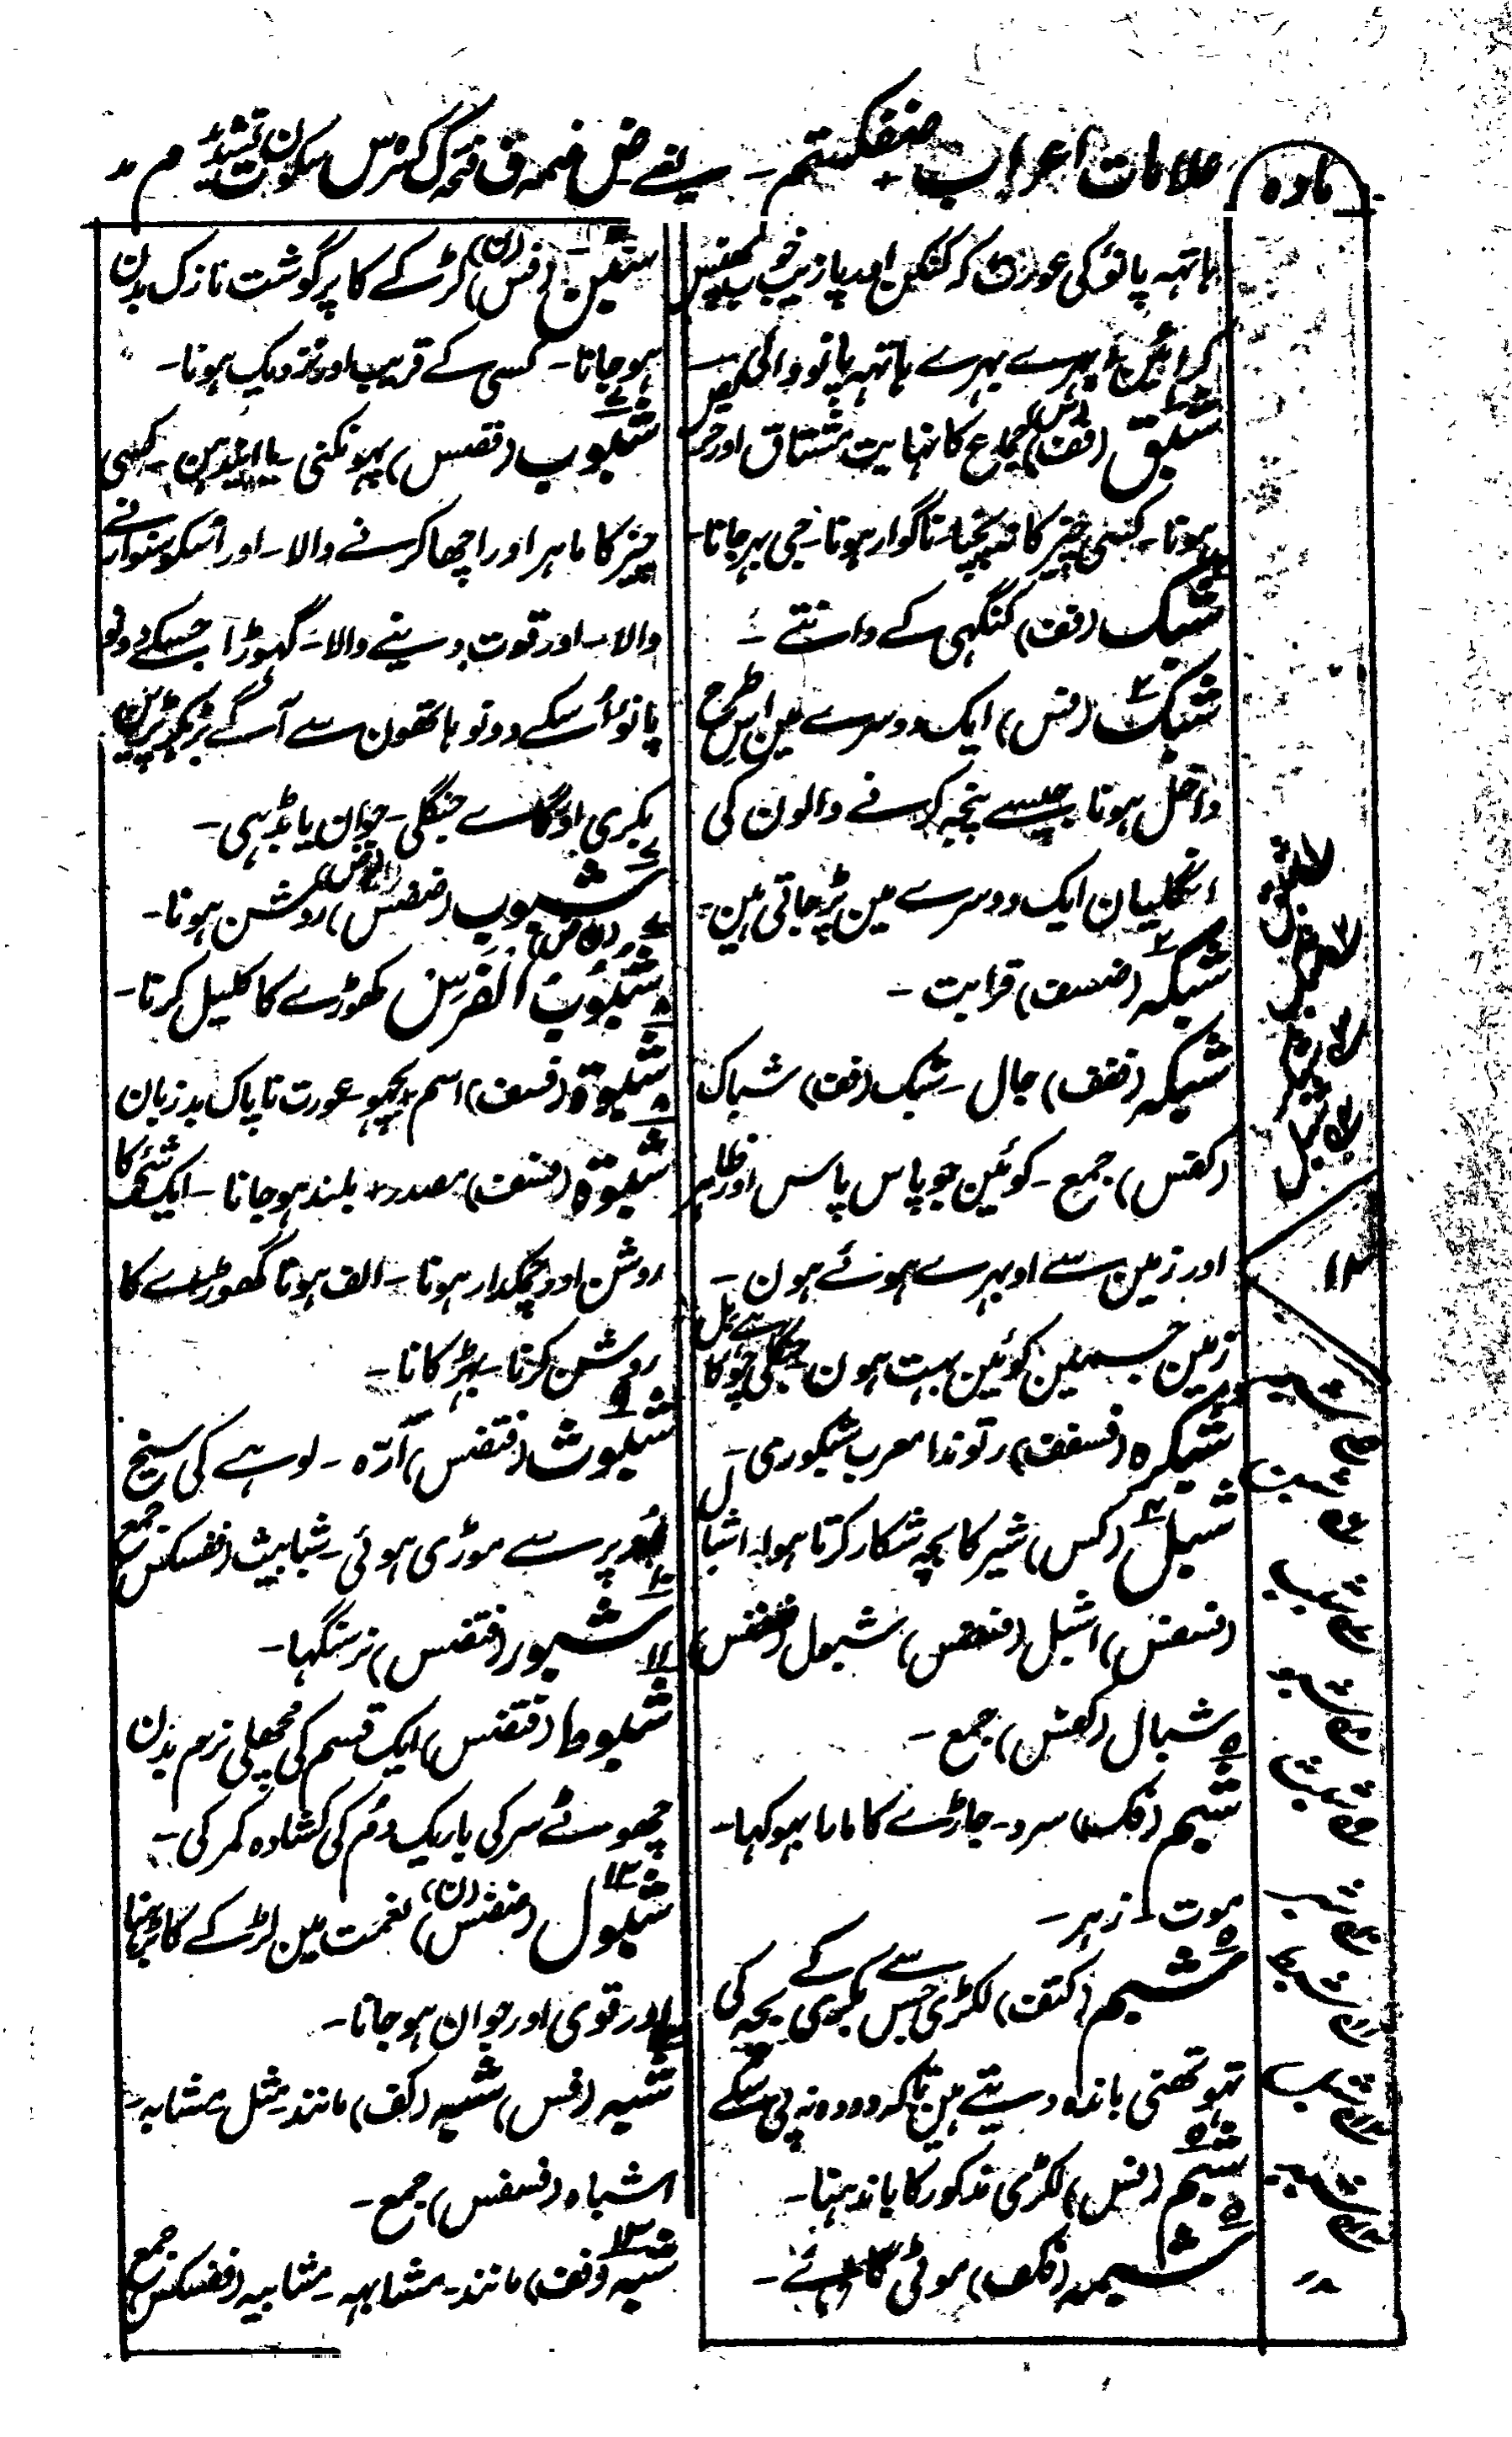 مادہ
علامات اعراب ضفکستم - یعنے ض ضمہ ف فتحہ ک کسر س سکون ت تشدید م مد
ہاتہہ پانؤ کی عورت کہ کنگن اور پازیب خوب پھنس
کر آئین - بہرے بہرے ہاتہہ پانو والی -
شبق (فف) (س) جماع کا نہایت مشتاق اور حریص
ہونا - کسی چیز کا نہ پچنا - ناگوار ہونا - جی بہر جانا -
شبک (فف) کنگہی کے دانتے -
شبک (فس) ایک دوسرے مین اس طرح
داخل ہونا جیسے پنجہ کرنے والون کی
انگلیان ایک دوسرے مین پڑ جاتی ہین -
شبکہ (ضسف) قرابت -
شبکہ (ففف) جال - شبک (فف) شباک
(کفس) جمع - کوئین جو پاس پاس اور ظاہر
اور زمین سے اوبہرے ہوئے ہون -
زمین جسمین کوئین بہت ہون جنگلی چوہے کا بل
شبکرہ (فسفف) رتوندا معرب شبکوری -
شبل (کس) شیر کا بچہ شکار کرتا ہوا - اشبال
(فسفس) اشبل (فسضس) شبول (ضضس)
شبال (کفس) جمع -
شبم (فک) سرد - جاڑے کا مارا بہوکہا -
موت - زہر -
شبم (کتف) لکڑی جس سے بکری کے بچہ کی
تہوتھنی باندہ دیتے ہین تاکہ دودہ نہ پی سکے
شبم (فس) لکڑی مذکور کا باندہنا -
شبمہ (فکف) موٹی گائے -
شبن (فس) (ن) لڑکے کا پر گوشت نازک بدن
ہو جانا - کسی کے قریب اور نزدیک ہونا -
شبوب (فضس) پہونکنی - یا ایندہن - کسی
چیز کا ماہر اور اچھا کرنے والا - اور اسکو سنوارنے
والا - اور قوت دینے والا - گہوڑا جسکے دونو
پانو اسکے دونو ہاتھون سے آگے بڑہکر پڑین
بکری اور گائے جنگلی - جوان یا بڈہی -
شبوب (ضضس) روشن ہونا -
شبوب الفرس گھوڑے کا کلیل کرنا -
شبوۃ (فسف) اسم + بچہو - عورت ناپاک بد زبان
شبوۃ (فسف) مصدر + بلند ہو جانا - ایک شئی کا
روشن اور چمکدار ہونا - الف ہونا گھوڑے کا
روشن کرنا - بہڑکانا -
شبوث (فتضس) آرہ - لوہے کی سیخ
اوپر سے موڑی ہوئی - شبابیث (ففسکس) جمع
شبور (فتضس) نرسنگہا -
شبوط (فتضس) ایک قسم کی مچھلی نرم بدن
چھوٹے سر کی باریک دم کی کشادہ کمر کی -
شبول (ضضس) (ن) نعمت مین لڑکے کا بڑہنا
اور قوی اور جوان ہو جانا -
شبہ (فس) شبہ (کف) مانند - مثل - مشابہ -
اشباہ (فسفس) جمع -
شبہ (فف) مانند - مشابہہ - مشابیہ (ففسکس) جمع